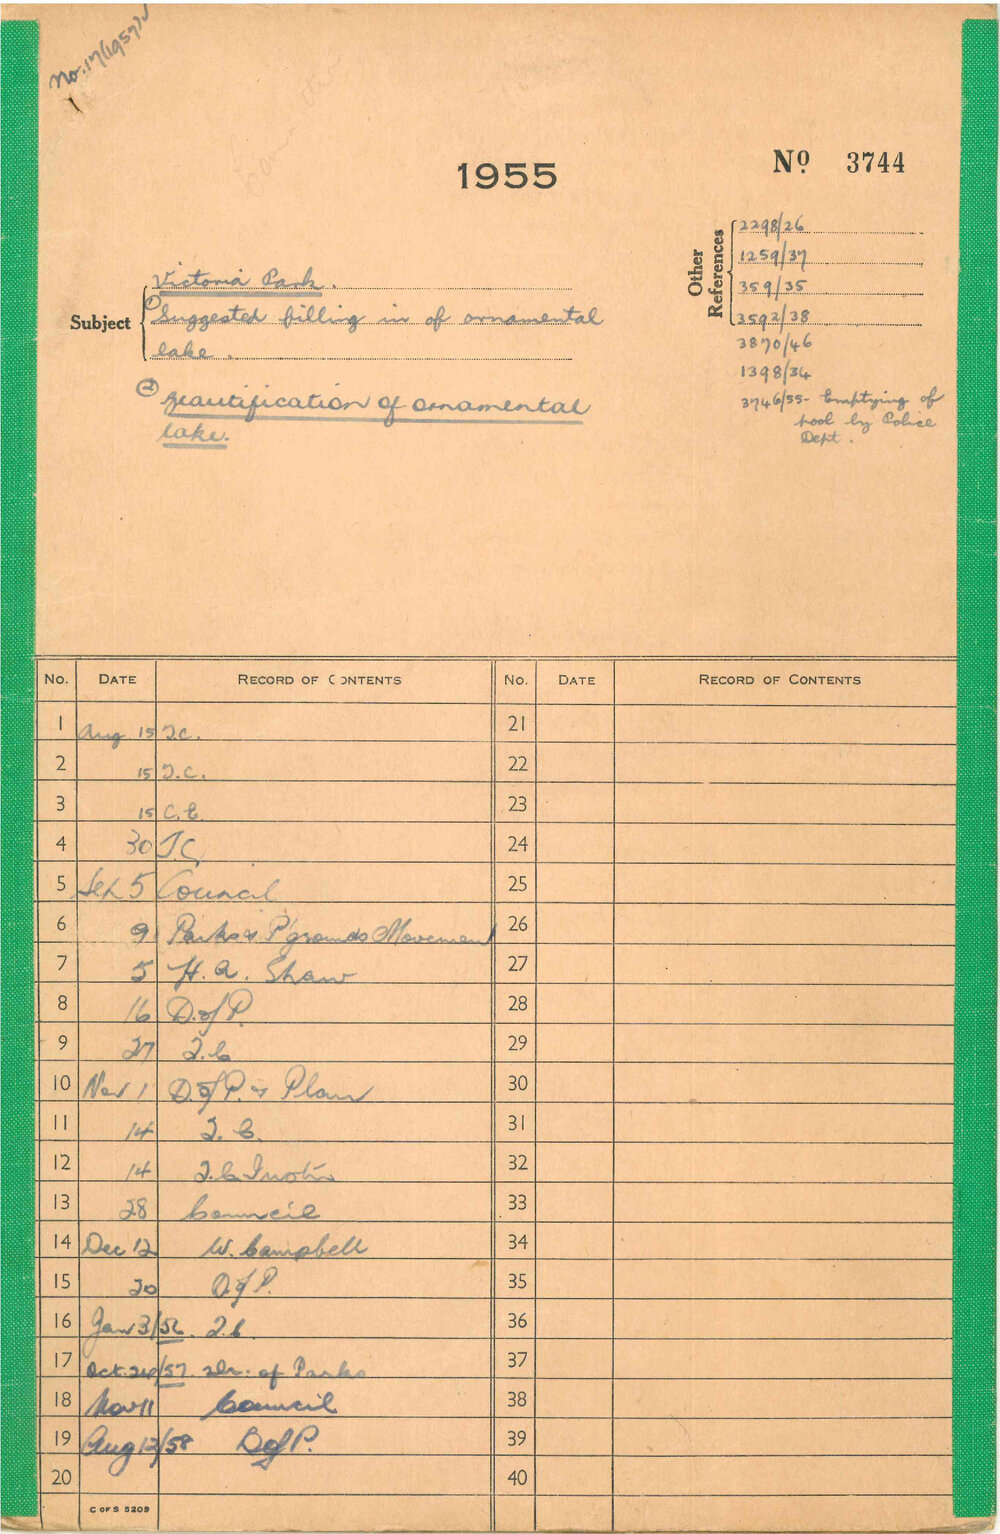 No. 17/1957
1955
Nº 3744
Other References
2298/26
1259/37
359/35
3592/38
3870/46
1398/34
3746/55 - Emptying of
pool by Police
Dept.
Subject
Victoria Park.
① Suggested filling in of ornamental
lake.
② Beautification of ornamental
lake.
No. DATE RECORD OF CONTENTS No. DATE RECORD OF CONTENTS
1 Aug 15 T.C. 21
2 15 T.C. 22
3 15 C.E. 23
4 30 TC 24
5 Sep 5 Council 25
6 9 Parks & P'grounds Movement 26
7 5 H. A. Shaw 27
8 16 D.of P. 28
9 27 T.C 29
10 Nov 1 D.of P. & Plan 30
11 14 T.C. 31
12 14 T.C 32
13 28 Council 33
14 Dec 12 W. Campbell 34
15 20 D of P. 35
16 Jan 3/56 T.C. 36
17 Oct. 24/57 Dir. of Parks 37
18 Nov 11 Council 38
19 Aug 12/58 D of P. 39
20 40
C OF S 5209